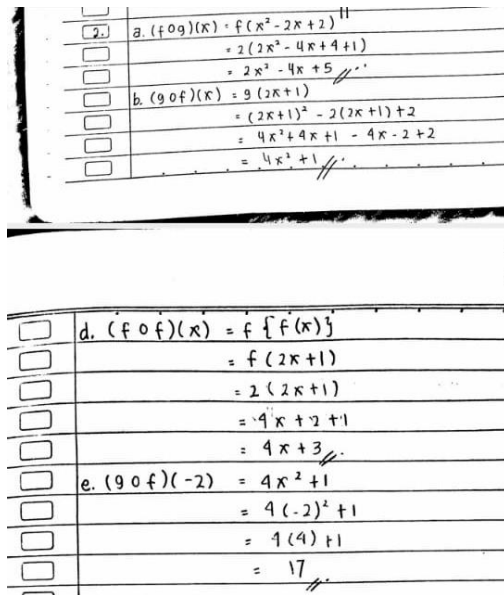 2. a. (fog)(x) = f(x² - 2x + 2)
= 2(2x² - 4x + 4 + 1)
= 2x² - 4x + 5
b. (gof)(x) = g(2x+1)
= (2x+1)² - 2(2x+1) + 2
= 4x² + 4x + 1 - 4x - 2 + 2
= 4x² + 1
d. (f o f)(x) = f {f(x)}
= f(2x+1)
= 2(2x+1)
= 4x + 2 + 1
= 4x + 3
e. (g o f)(-2) = 4x² + 1
= 4(-2)² + 1
= 4(4) + 1
= 17